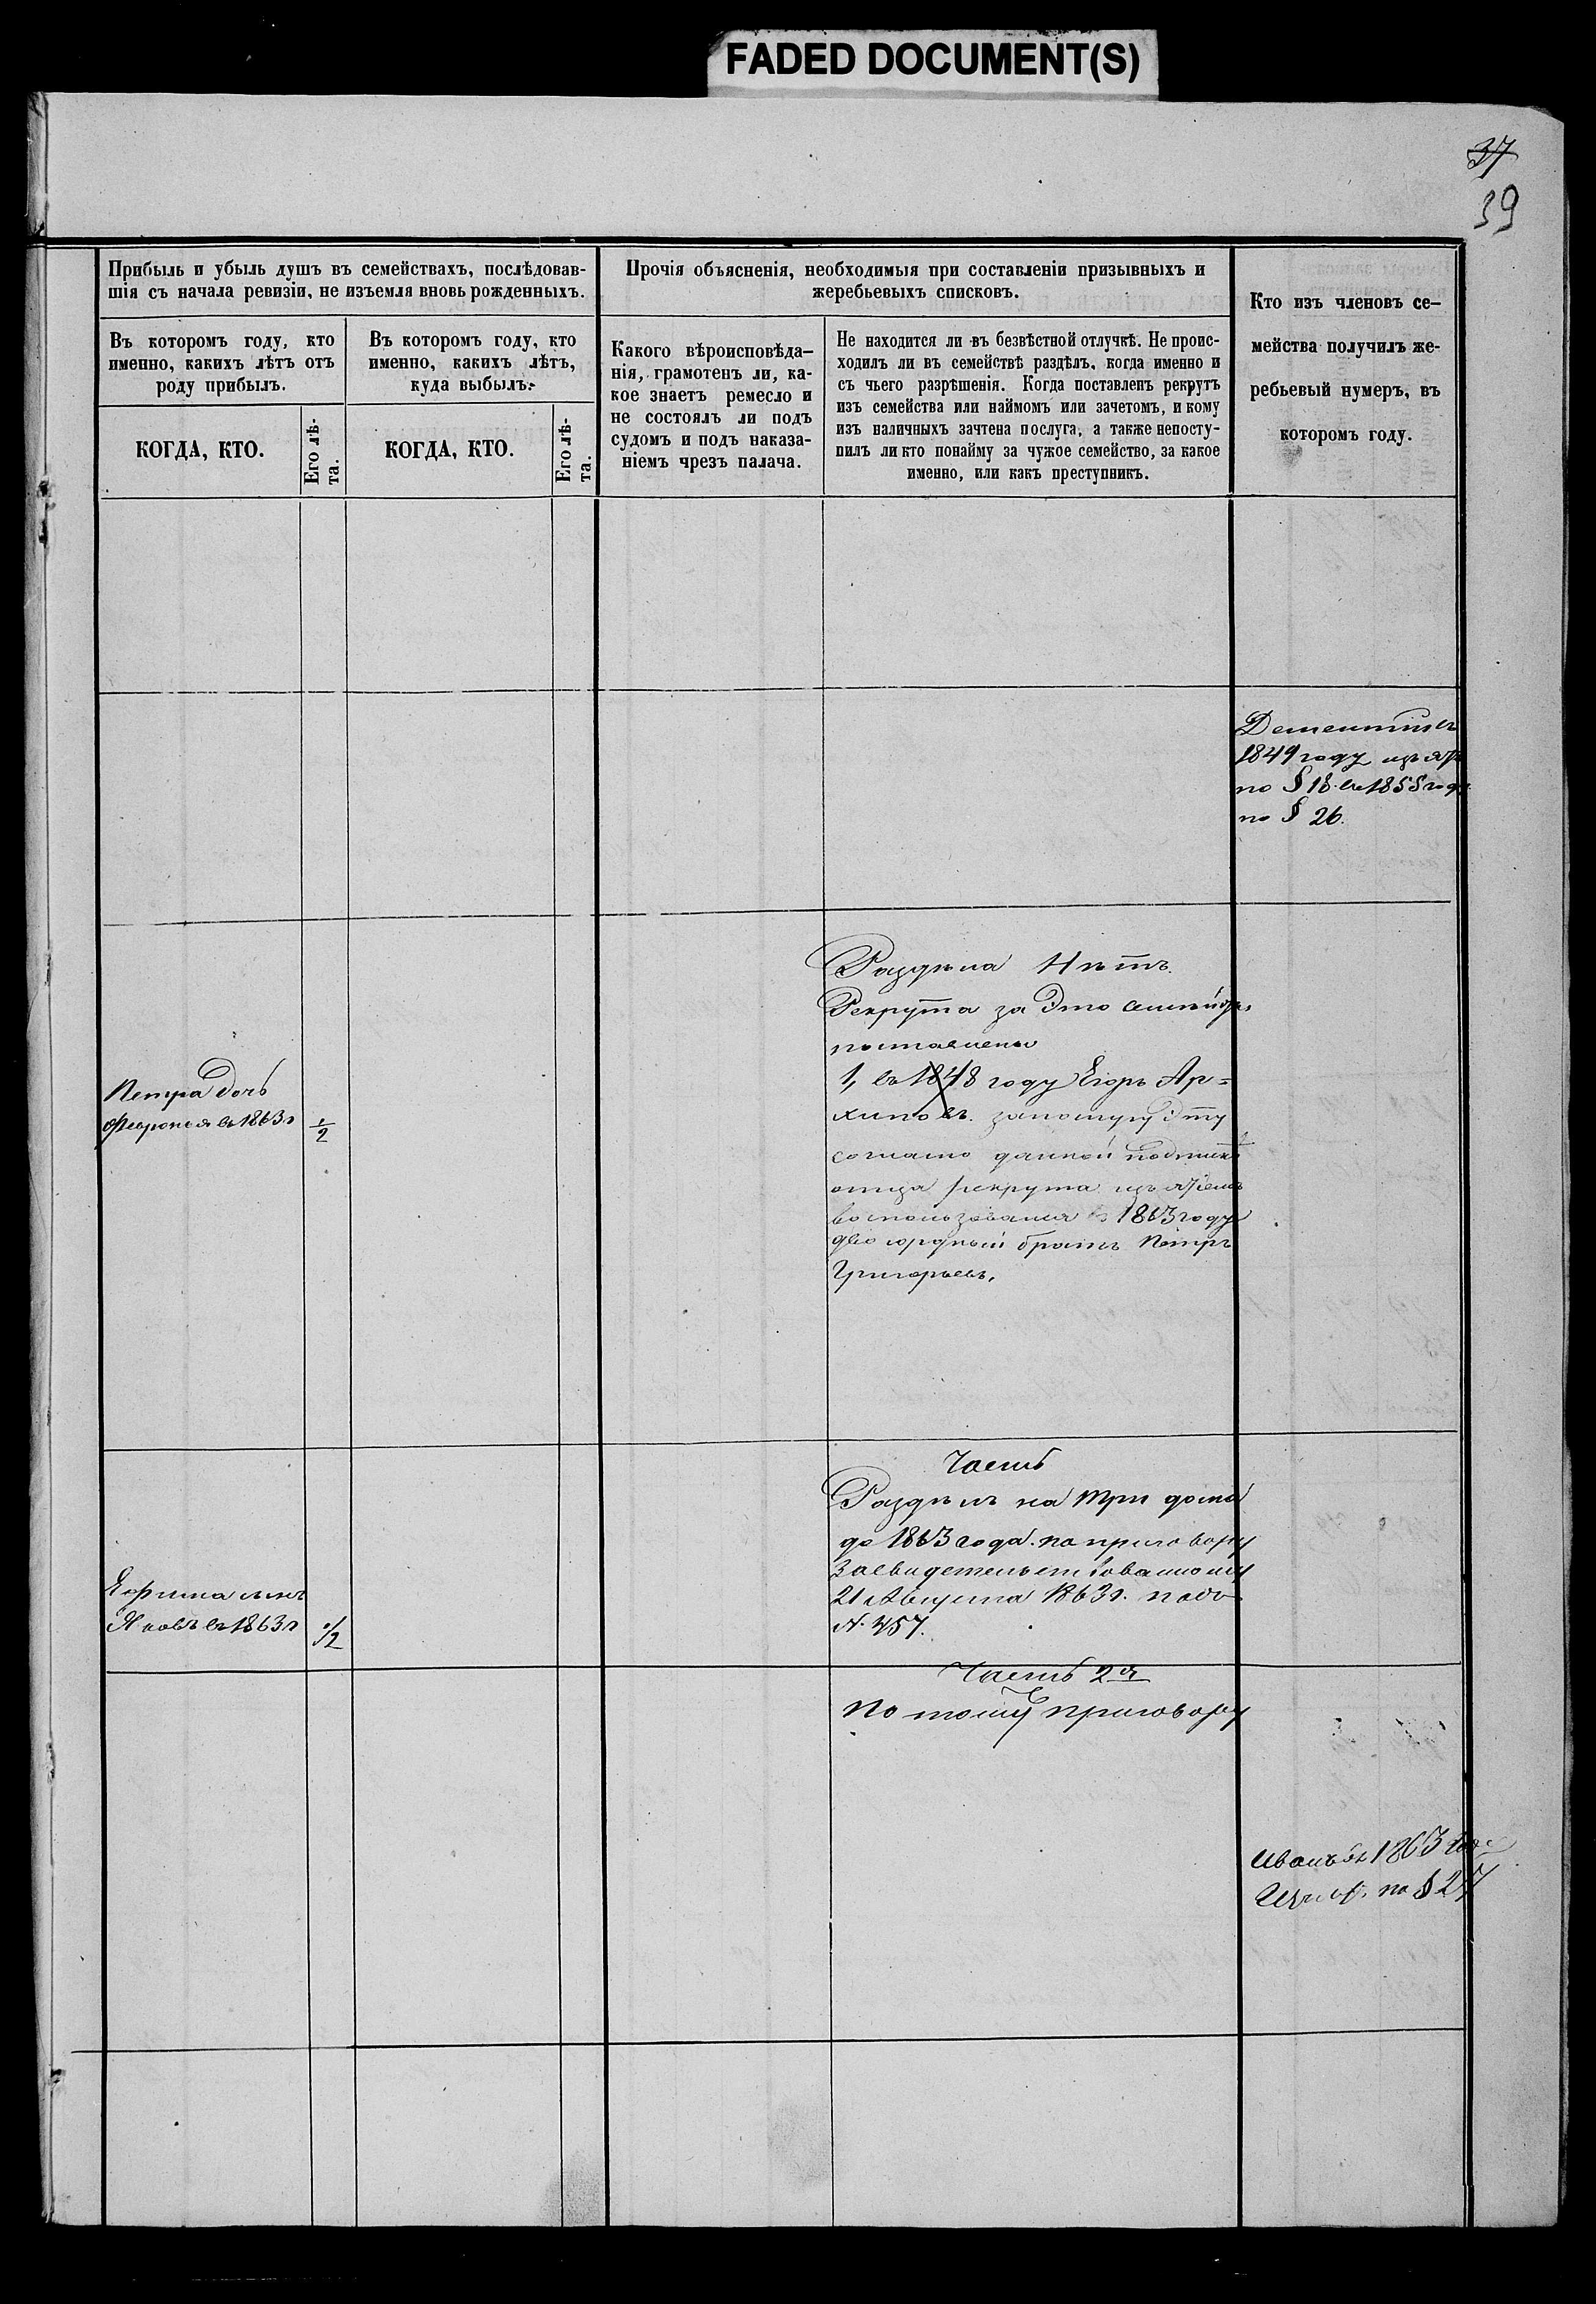 FADED DOCUMENT(S)
37
39
Прибыль и убыль душъ въ семействахъ, послѣдовав-
шія съ начала ревизіи, не изъемля вновь рожденныхъ.
Прочія объясненія, необходимыя при составленіи призывныхъ и
жеребьевыхъ списковъ.
Кто изъ членовъ се-
мейства получилъ же-
ребьевый нумеръ, въ
которомъ году.
Въ которомъ году, кто
именно, какихъ лѣтъ отъ
роду прибылъ.
Въ которомъ году, кто
именно, какихъ лѣтъ,
куда выбылъ.
Какого вѣроисповѣда-
нія, грамотенъ ли, ка-
кое знаетъ ремесло и
не состоялъ ли подъ
судомъ и подъ наказа-
ніемъ чрезъ палача.
Не находится ли въ безвѣстной отлучкѣ. Не проис-
ходилъ ли въ семействѣ раздѣлъ, когда именно и
съ чьего разрѣшенія. Когда поставленъ рекрутъ
изъ семейства или наймомъ или зачетомъ, и кому
изъ наличныхъ зачтена послуга, а также непосту-
пилъ ли кто понайму за чужое семейство, за какое
именно, или какъ преступникъ.
КОГДА, КТО.
Его лѣ-
та.
КОГДА, КТО.
Его лѣ-
та.
Дементій въ
1849 году
по § 18. въ 1855 году
по § 26.
Раздѣла Нѣтъ.
Рекрута за Это
поставлены
1, въ 1848 году Егоръ Ар=
хиповъ. запослугу Эту
согласно данной подписки
отца рекрута
воспользовался въ 1863 году
двоюродный братъ Петръ
Григорьевъ.
Петра Дочь
Февронія въ 1863 г
1/2
Часть
Раздѣлъ на Три дома
до 1863 года. по приговору
Засвидетельствованному
21 Августа 1863 г. подъ
№ 457.
Ефима сынъ
Яковъ въ 1863 г
1/2
Часть 2я
По тому приговору
Иванъ въ 1863
по § 27